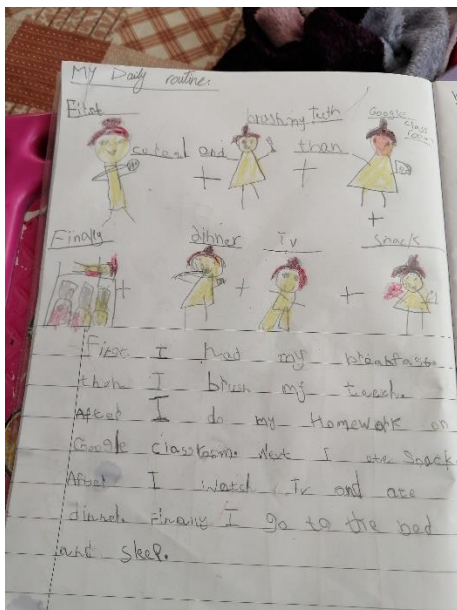 My Daily routine.
First brushing Teeth Google class room
cereal and than
Finally dinner Tv snack
First I had my breakfast
then I brush my teeth.
After I do my Homework on
Google classroom. Next I ate Snack
After I watch Tv and ate
dinner. Finally I go to the bed
and sleep.